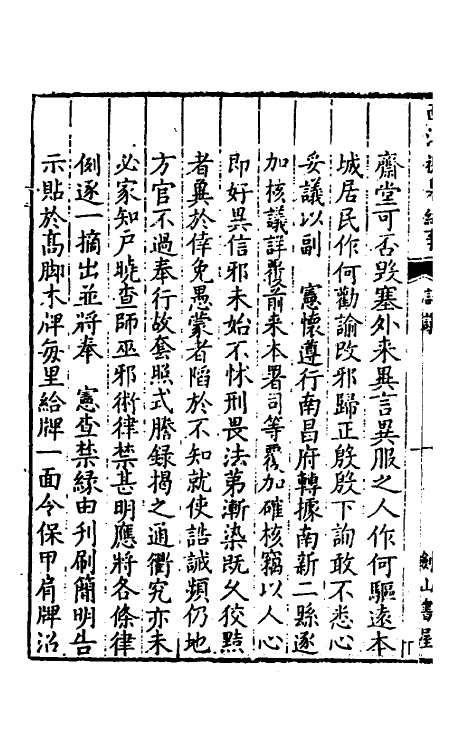 齋堂可否毀塞外来異言異服之人作何驅逺本
城居民作何勸諭改邪歸正殷殷下詢敢不悉心
妥議以副　憲懷遵行南昌府轉據南新二縣逐
加核議詳覆前来本署司等覆加確核竊以人心
即好異信邪未始不怵刑畏法第漸染既久狡黠
者冀於倖免愚蒙者陷於不知就使誥誡頻仍地
方官不過奉行故套照式謄録揭之通衢究亦未
必家知戶曉查師巫邪術律禁甚明應將各條律
例逐一摘出並將奉　憲查禁緑由刊刷簡明告
示貼於髙脚木牌每里給牌一面令保甲肩牌沿
劍山書屋